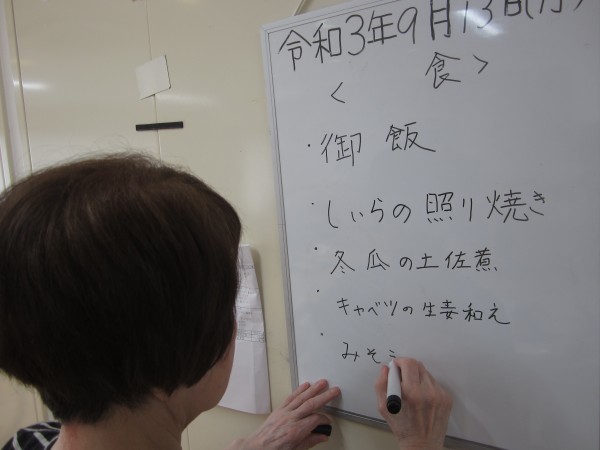 令和3年9月13日(月)
< 食>
・御飯
・しいらの照り焼き
・冬瓜の土佐煮
・キャベツの生姜和え
・みそ